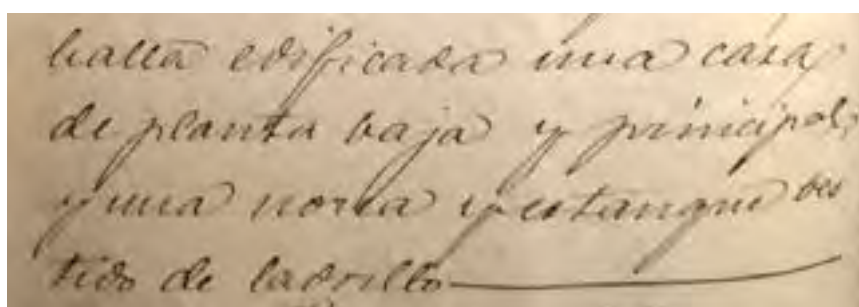 halla edificada una casa
de planta baja y principal,
y una noria y estanque ves
tido de ladrillo